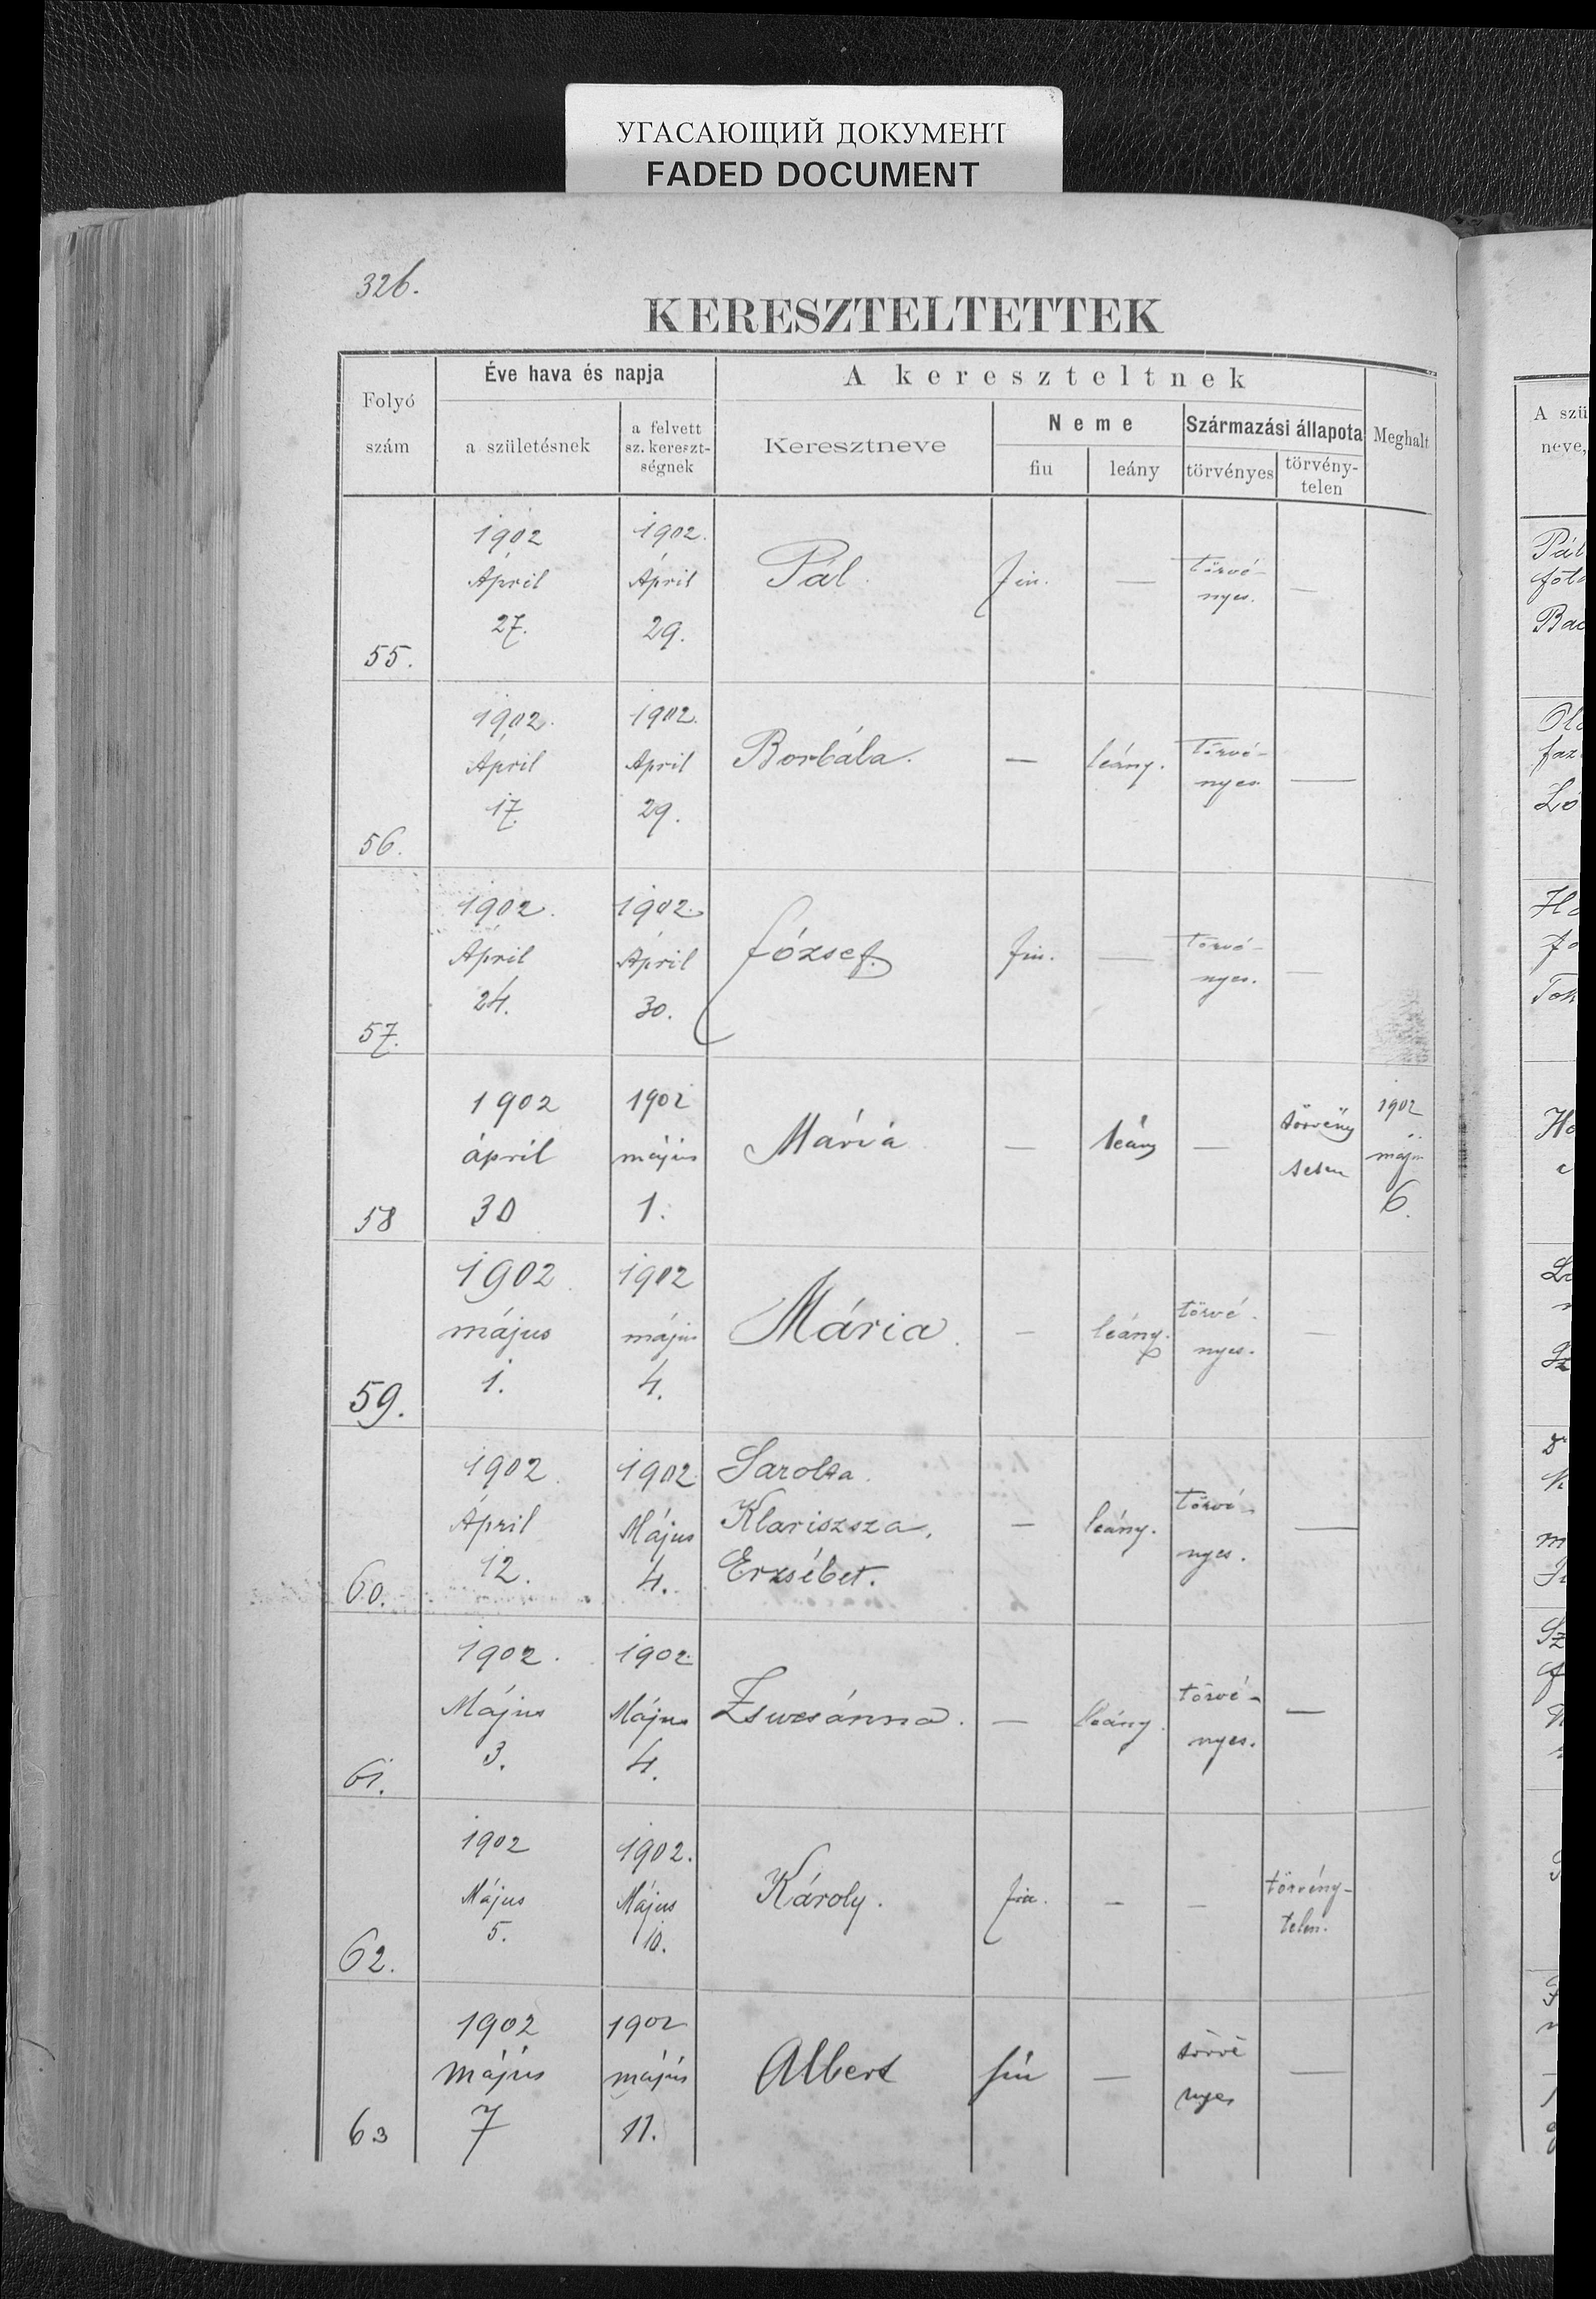 УГАСАЮЩИЙ ДОКУМЕНТ
FADED DOCUMENT
326.
KERESZTELTETTEK
Folyó szám
Éve hava és napja
a születésnek
a felvett
sz. kereszt-
ségnek
A kereszteltnek
Keresztneve
Neme
fiu
leány
Származási állapota
törvényes
törvény-
telen
Meghalt
A szü
neve,
55.
1902
Ápril
27.
1902.
Ápril
29.
Pál.
fiu.
—
törvé-
nyes.
—
Pál
Bac
56.
1902.
Ápril
17.
1902.
April
29.
Borbála.
—
leány.
törvé-
nyes
—
faz
57.
1902.
Ápril
24.
1902.
Ápril
30.
József.
fiu.
—
törvé-
nyes.
—
58
1902
ápril
30
1902
május
1.
Mária
—
leány
—
törvény
telen
1902
máju
6.
59.
1902
május
1.
1902
május
4.
Mária.
—
leány.
törvé-
nyes.
—
60.
1902.
Ápril
12.
1902
Május
4.
Sarolta.
Klariszsza.
Erzsébet.
—
leány.
törvé-
nyes.
—
61.
1902.
Május
3.
1902.
Május
4.
Zsuzsánna.
—
leány.
törvé-
nyes.
—
62.
1902
Május
5.
1902.
Május
10.
Károly.
fiu.
—
—
törvény-
telen.
63
1902
május
7
1902
május
11.
Albert
fiu
—
törvé
nyes
—